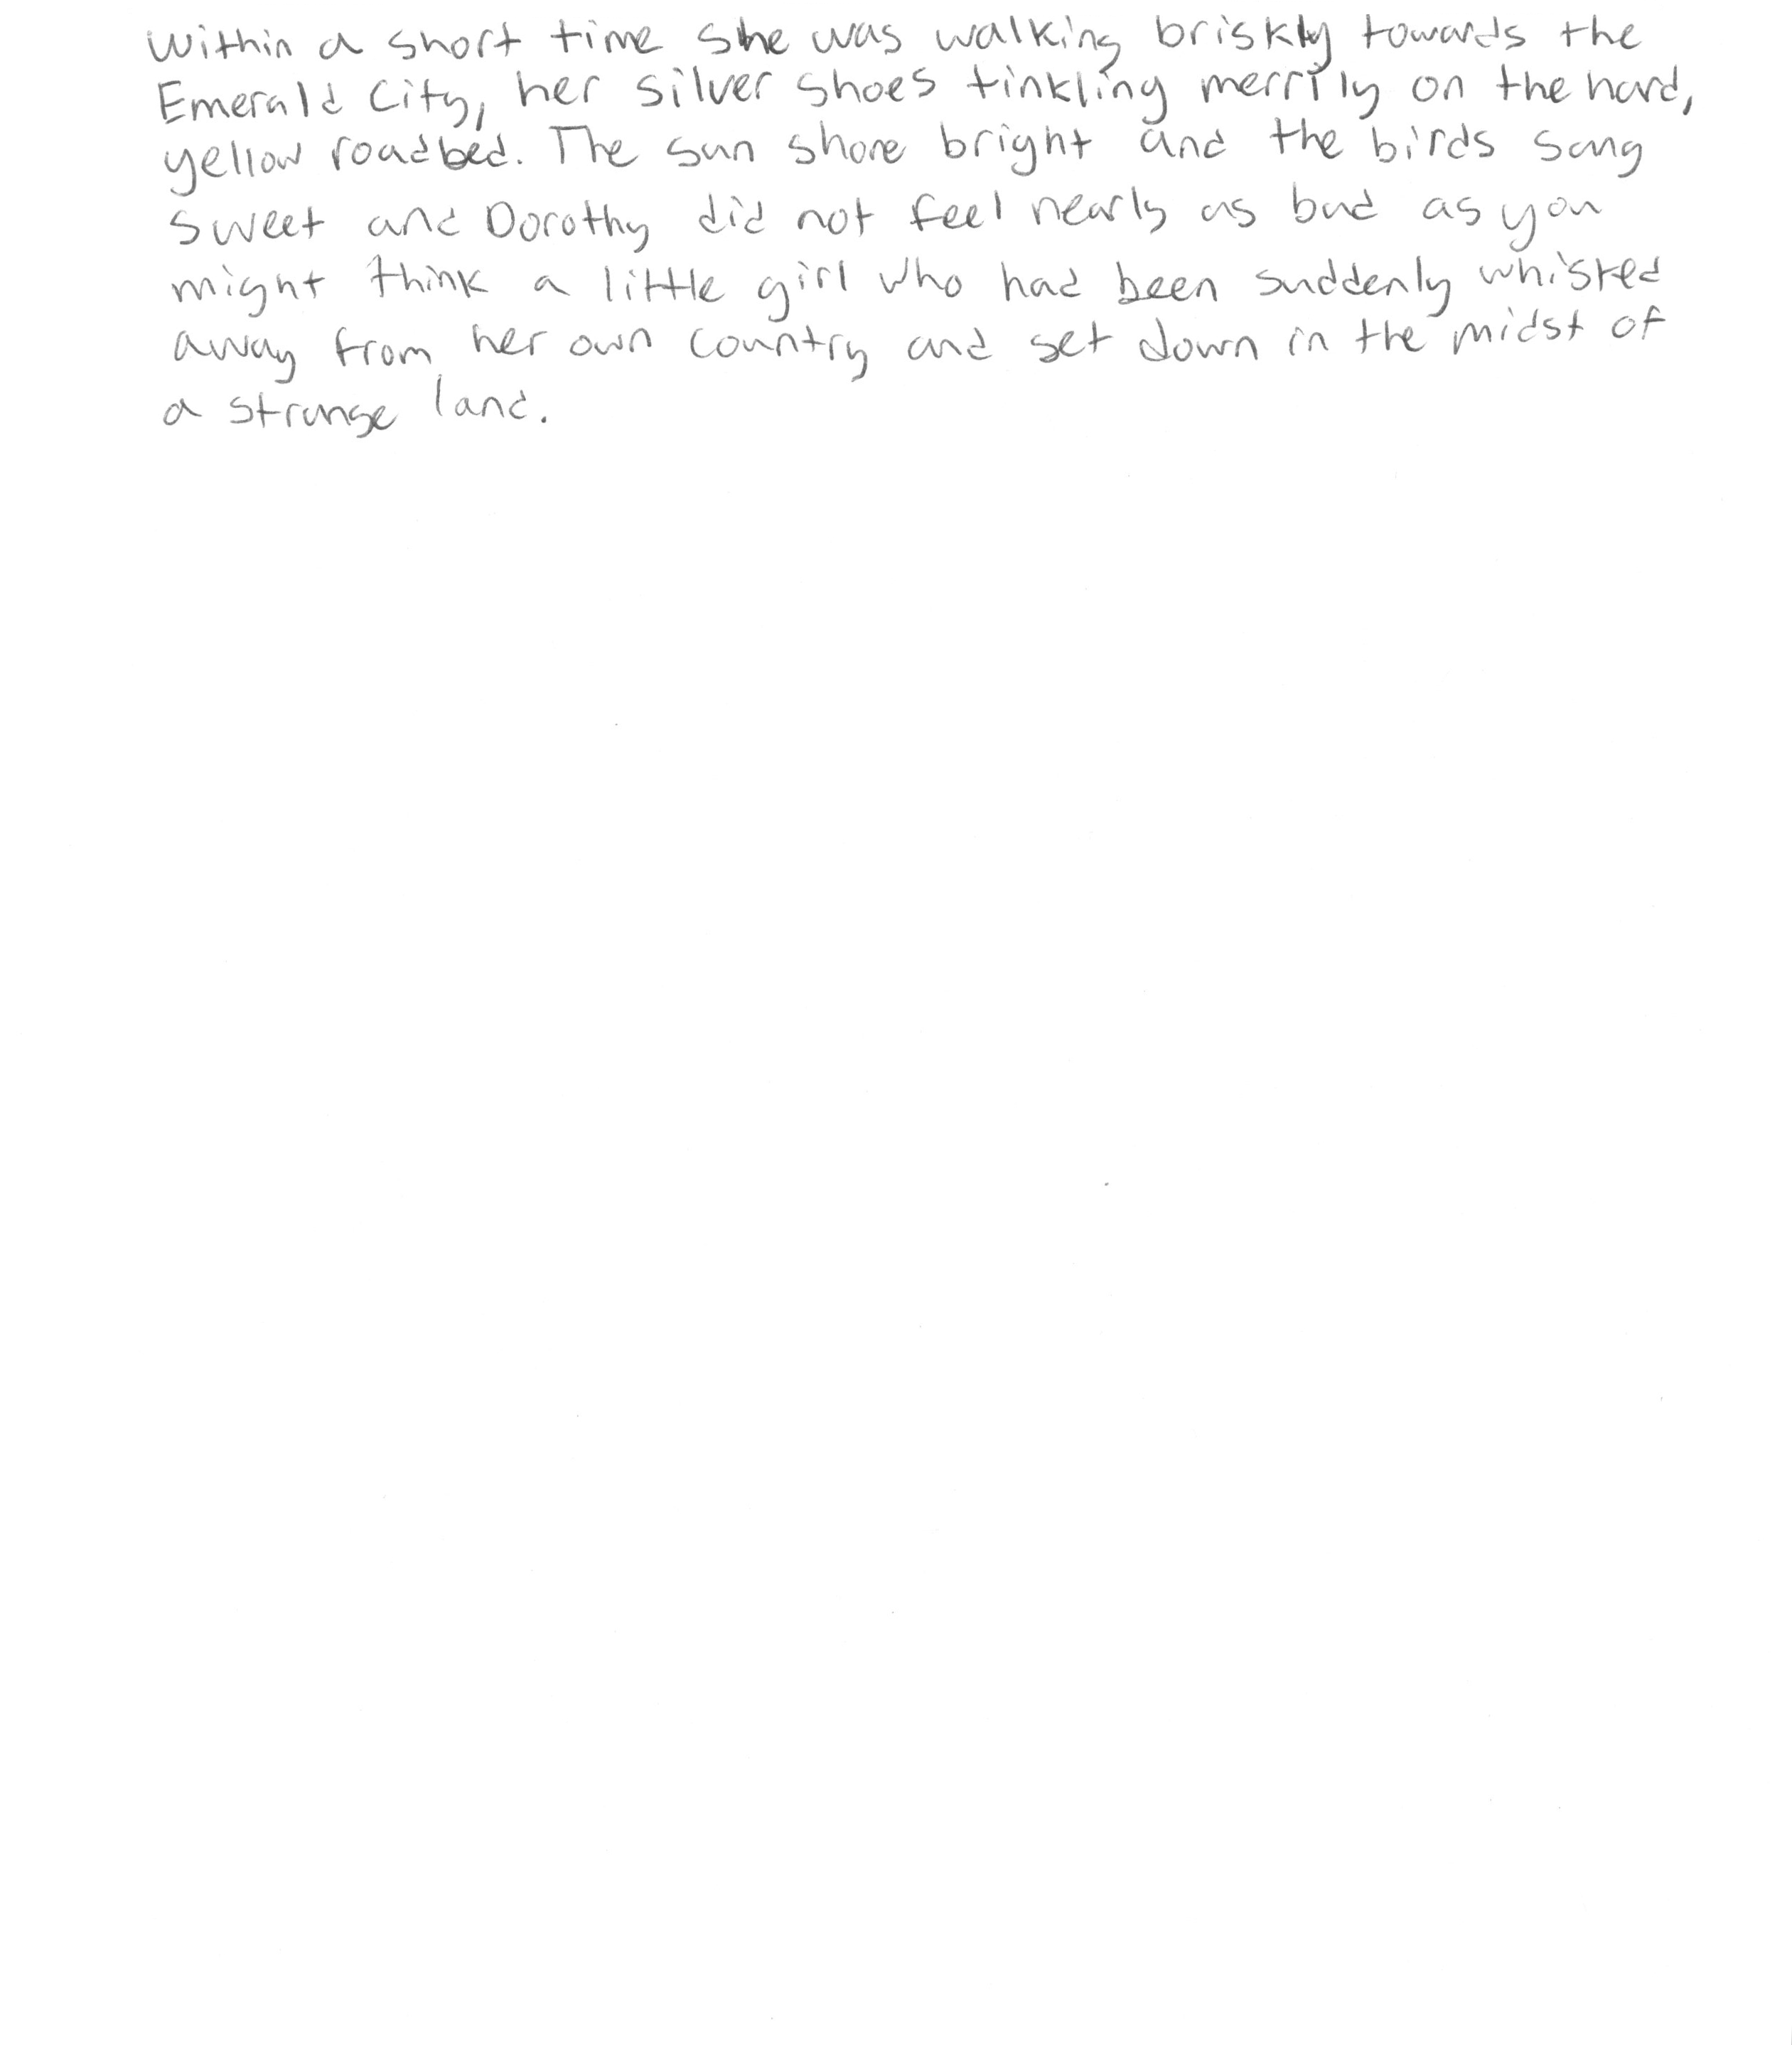 Within a short time she was walking briskly towards the
Emerald City, her silver shoes tinkling merrily on the hard,
yellow roadbed. The sun shone bright and the birds sang
sweet and Dorothy did not feel nearly as bad as you
might think a little girl who had been suddenly whisked
away from her own country and set down in the midst of
a strange land.